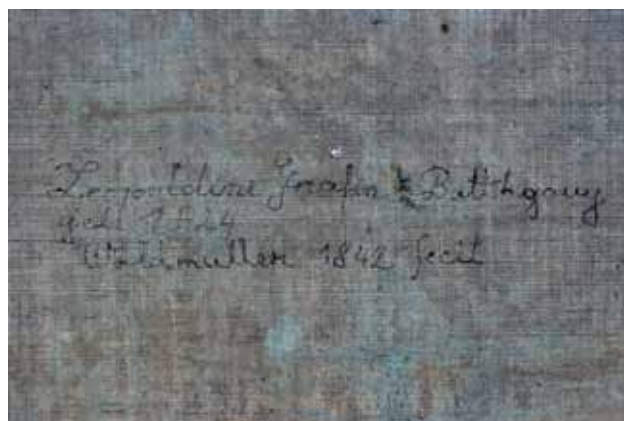 Leopoldine Gräfin Batthyany
geb. 1824
Waldmüller 1842 fecit